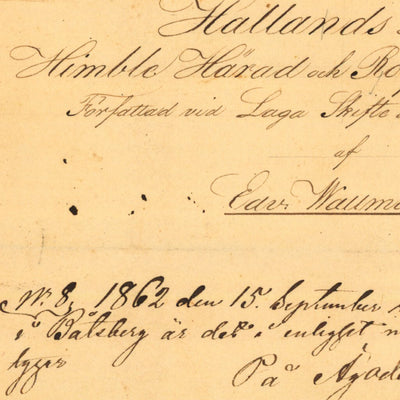 Hallands
Himble Härad och
Författad vid Laga Skifte
af
Edv.
№ 8, 1862 den 15. September
i Båtsberg är det i enlighet
På